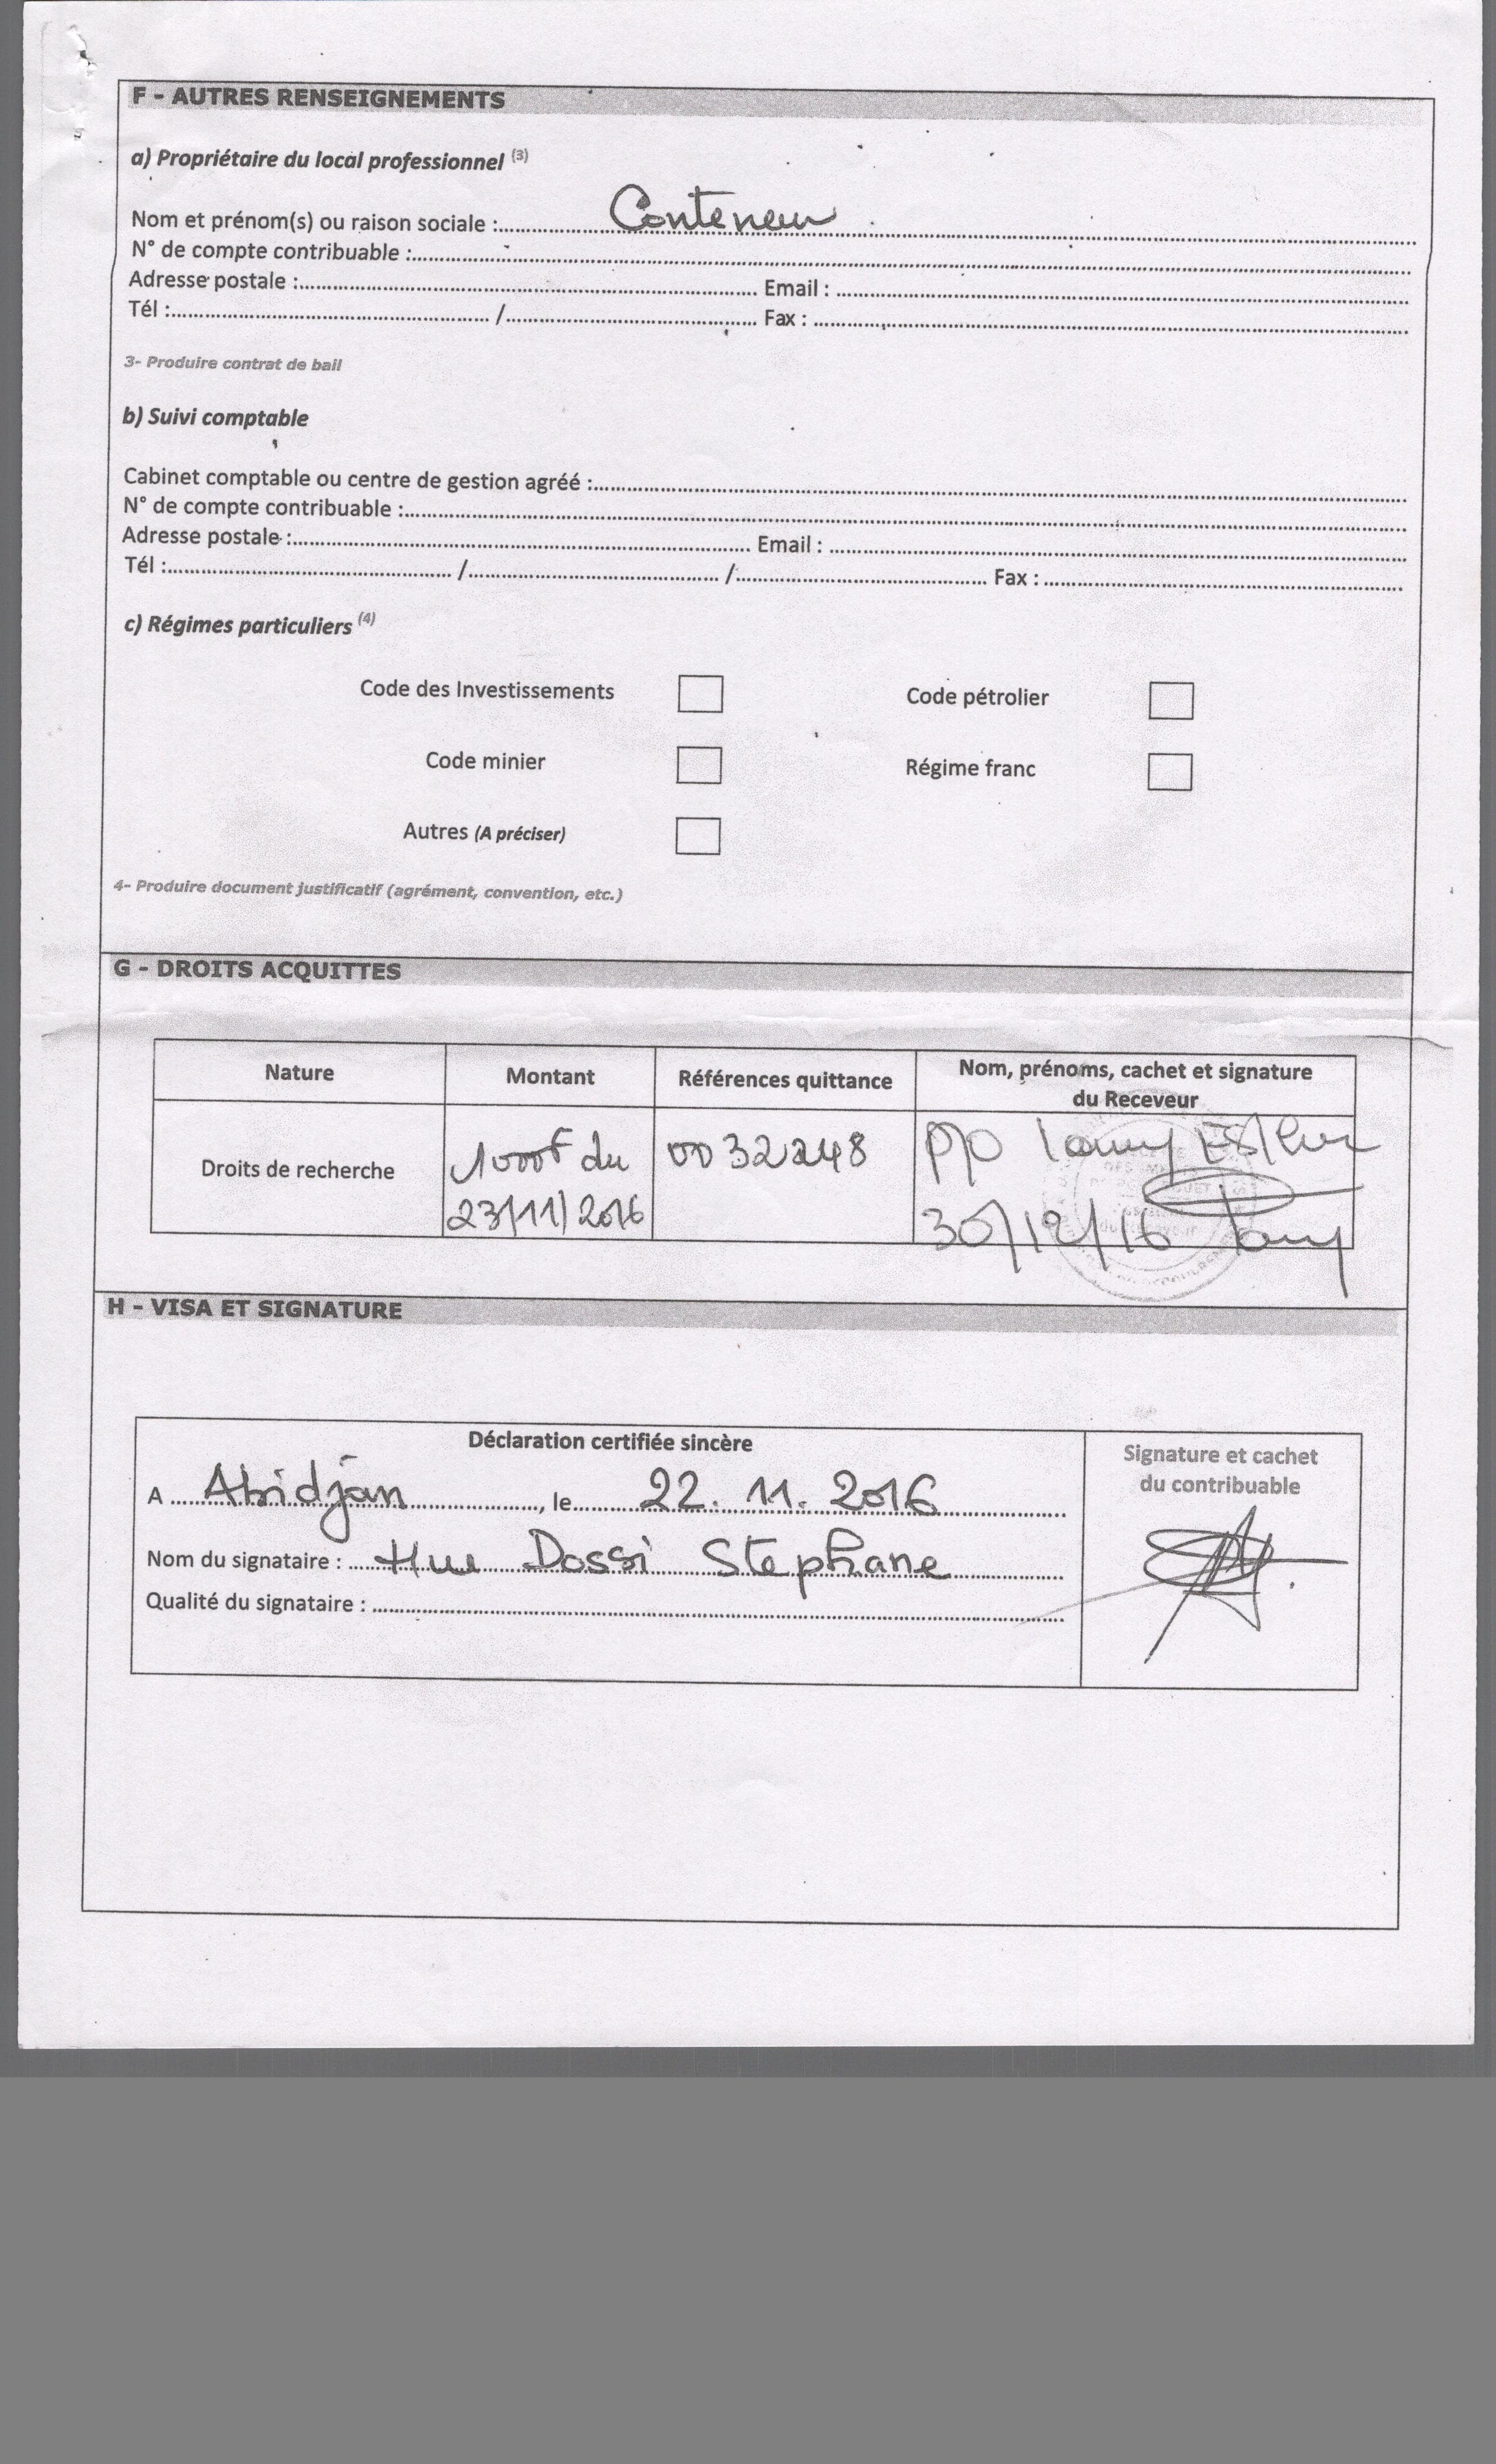 F - AUTRES RENSEIGNEMENTS
a) Propriétaire du local professionnel (3)
Nom et prénom(s) ou raison sociale : Conteneur
N° de compte contribuable :
Adresse postale : Email :
Tél : / Fax :
3- Produire contrat de bail
b) Suivi comptable
Cabinet comptable ou centre de gestion agréé :
N° de compte contribuable :
Adresse postale : Email :
Tél : / / Fax :
c) Régimes particuliers (4)
Code des Investissements Code pétrolier
Code minier Régime franc
Autres (A préciser)
4- Produire document justificatif (agrément, convention, etc.)
G - DROITS ACQUITTES
Nature Montant Références quittance Nom, prénoms, cachet et signature
du Receveur
Droits de recherche 1000F du 0032248 P/O
23/11/2016 30/12/16
H - VISA ET SIGNATURE
Déclaration certifiée sincère
Signature et cachet
du contribuable
A Abidjan, le 22.11.2016
Nom du signataire : Dossi Stephane
Qualité du signataire :